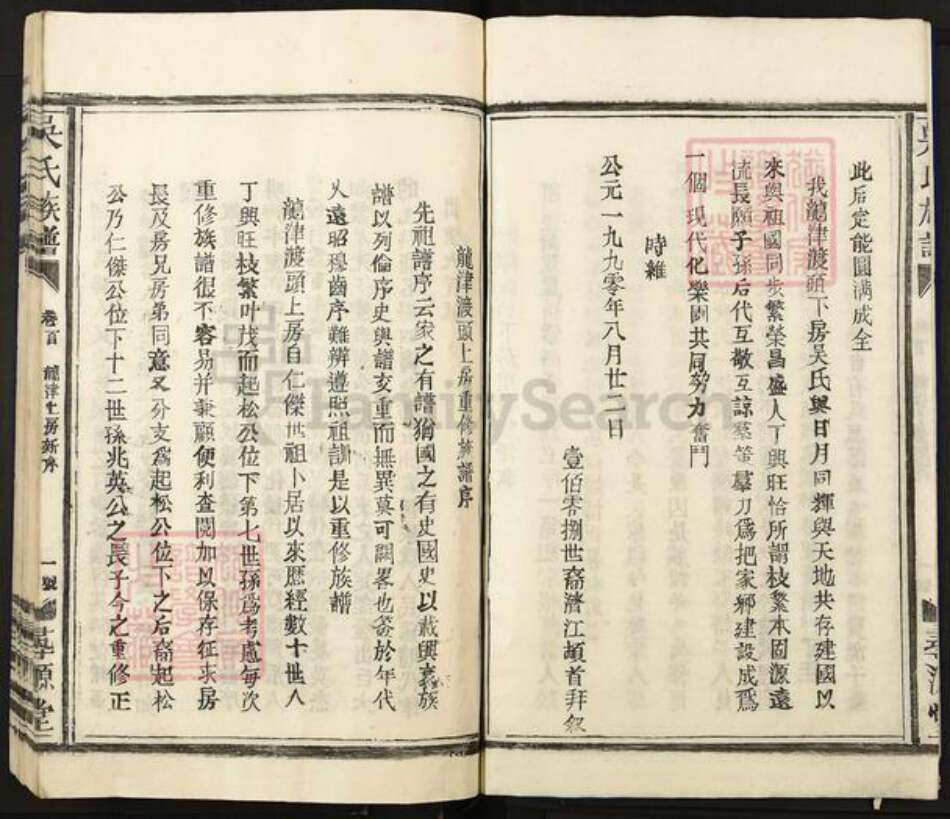 此后定能圓满成全
我龍津渡頭下房吴氏與日月同輝與天地共存建國以
來與祖國同步繁荣昌盛人丁興旺恰所謂枝繁本固源遠
流長願子孫后代互敬互諒羣策羣力爲把家鄉建設成爲
一個現代化樂園共同努力奮鬥
時雑
公元一九九零年八月廿二日
壹佰零捌世裔濟江頓首拜叙
龍津渡頭上房重修族譜序
先祖譜序云家之有譜猶國之有史國史以載興衰族
譜以列倫序史與譜交重而無異莫可闊畧也盖於年代
乆遠昭穆齒序難辨遵照祖訓是以重修族譜
龍津渡頭上房自仁傑世祖卜居以來歷經數十世人
丁興旺枝繁叶茂而起松公位下第七世孫爲考慮每次
重修族譜很不容易并兼顧便利查閱加以保存征求房
長及房兄房弟同意又分支爲起松公位下之后裔起松
公乃仁傑公位下十二世孫兆英公之長子今之重修正
吳氏族譜
卷首
龍津上房新序
一號
FamilySearch